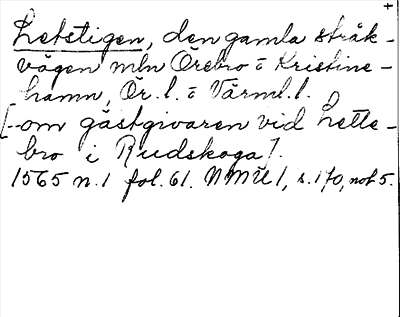 +
Letstigen, den gamla stråk-
vägen mln Örebro o Kristine-
hamn, Ör. l. o Värml. l.
[-om gästgivaren vid Lette-
bro i Rudskoga].
1565 n. 1 fol. 61. NMU 1, s. 170, not 5.